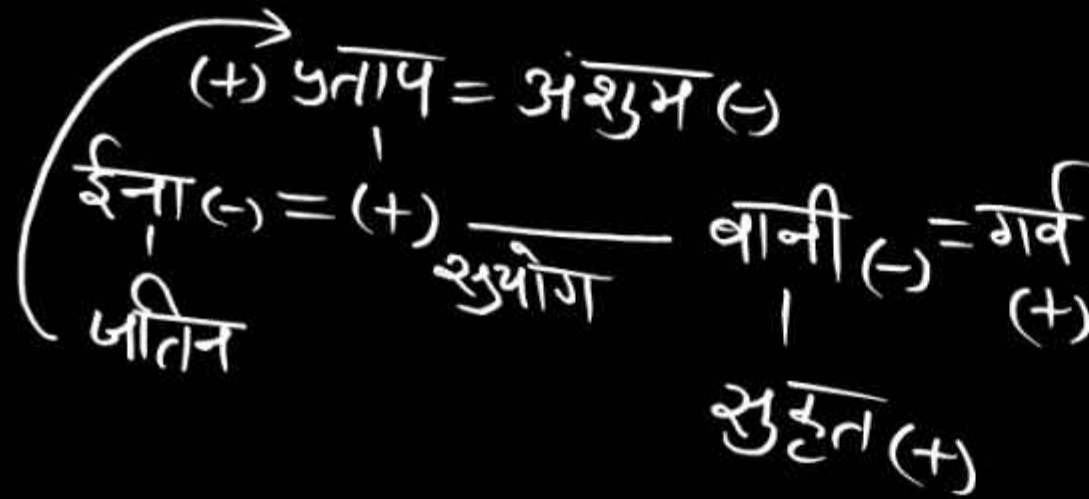 (+) प्रताप = अंशुम (-)
ईना (-) = (+) सुयोग — बानी (-) = गर्व (+)
जतिन
सुहृत (+)